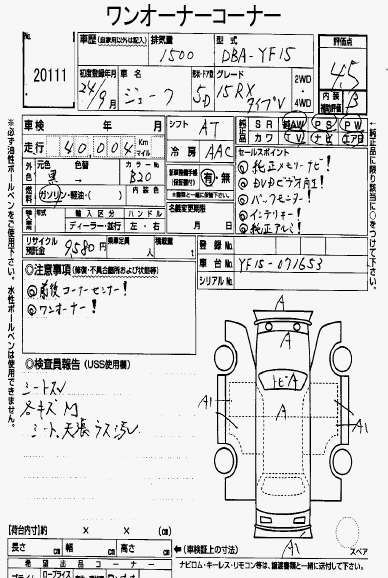 ワンオーナーコーナー
No.
20111
車歴 (自家用以外は記入)
排気量
1500
型式
DBA-YF15
評価点
4.5
内装
補助評価
B
初度登録年月
24/9月
車名
ジューク
ボディ・ドア
5D
グレード
15RX
タイプV
2WD
4WD
車検 年 月
シフト AT
純正品
SR 純AW PS PW
カワ TV ナビ エアB
走行 40004 Km マイル
冷房 AAC
セールスポイント
◎純正メモリーナビ!
◎DVDビデオ再生!
◎バックモニター!
◎インテリキー!
◎純正アルミ!
外色 元色 黒→ 色替 カラーNo. B20
燃料 ガソリン・軽油・( ) 内装色
有・無
輸入車 年式 輸入区分 ハンドル
ディーラー・並行 左・右
名義変更期限
月 日
リサイクル預託金 9580円
乗車定員 人
積載量 t
登録No.
車台No. YF15-071653
シリアルNo.
◎注意事項 (修復・不具合箇所および状態等)
◎前後コーナーセンサー!
◎ワンオーナー!
◎検査員報告 (USS使用欄)
シートスレ
各キズM
シート、天張ラス汚レ
A
A
トビA
A
A1
A1
A1
A1
A1
スペア
【荷台内寸】 × × (cm)
長さ cm 幅 cm 高さ cm
←(車検証上の寸法)
希望出品コーナー
ナビロム・キーレス・リモコン等は、譲渡書類と一緒に送付して下さい。
※必ず油性ボールペンをご使用下さい。水性ボールペンは使用できません。
純正品に限り該当に○をつけて下さい。